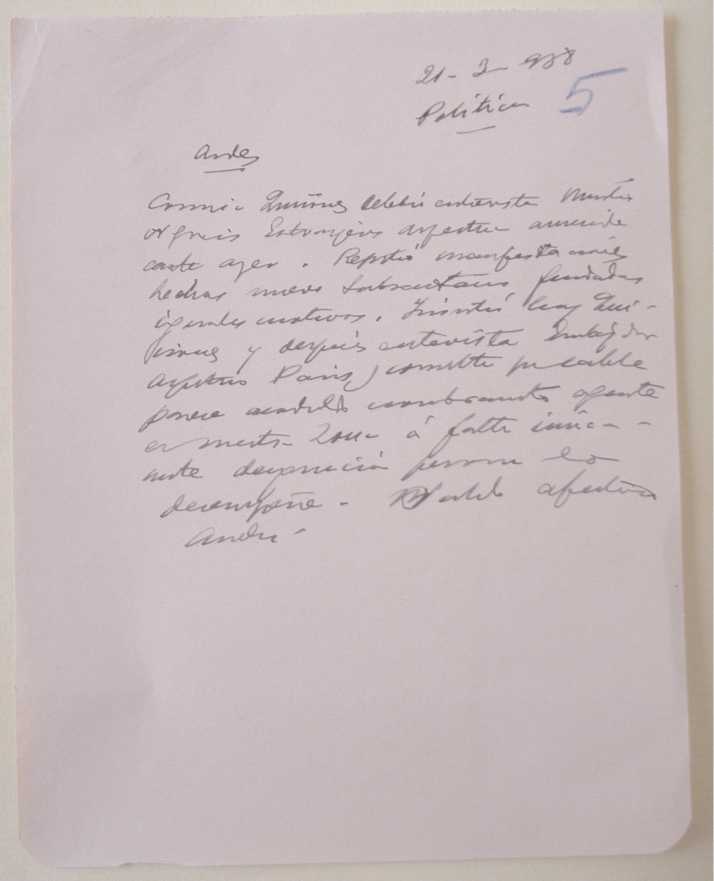 21-3-938
Política 5
Andes
Connic Quiñones celebró entrevista Ministro
Negocios Extranjeros Argentina anunciada
carta ayer. Repitió manifestaciones
hechas nuevo Subsecretario fundadas
iguales motivos. Insistió hoy Qui-
ñones y después entrevista Embajador
Argentina París) comité
parece acordado nombramiento agente
en nuestra Zona á falta única-
mente designación persona lo
desempeñe. Saludo afectuoso
André